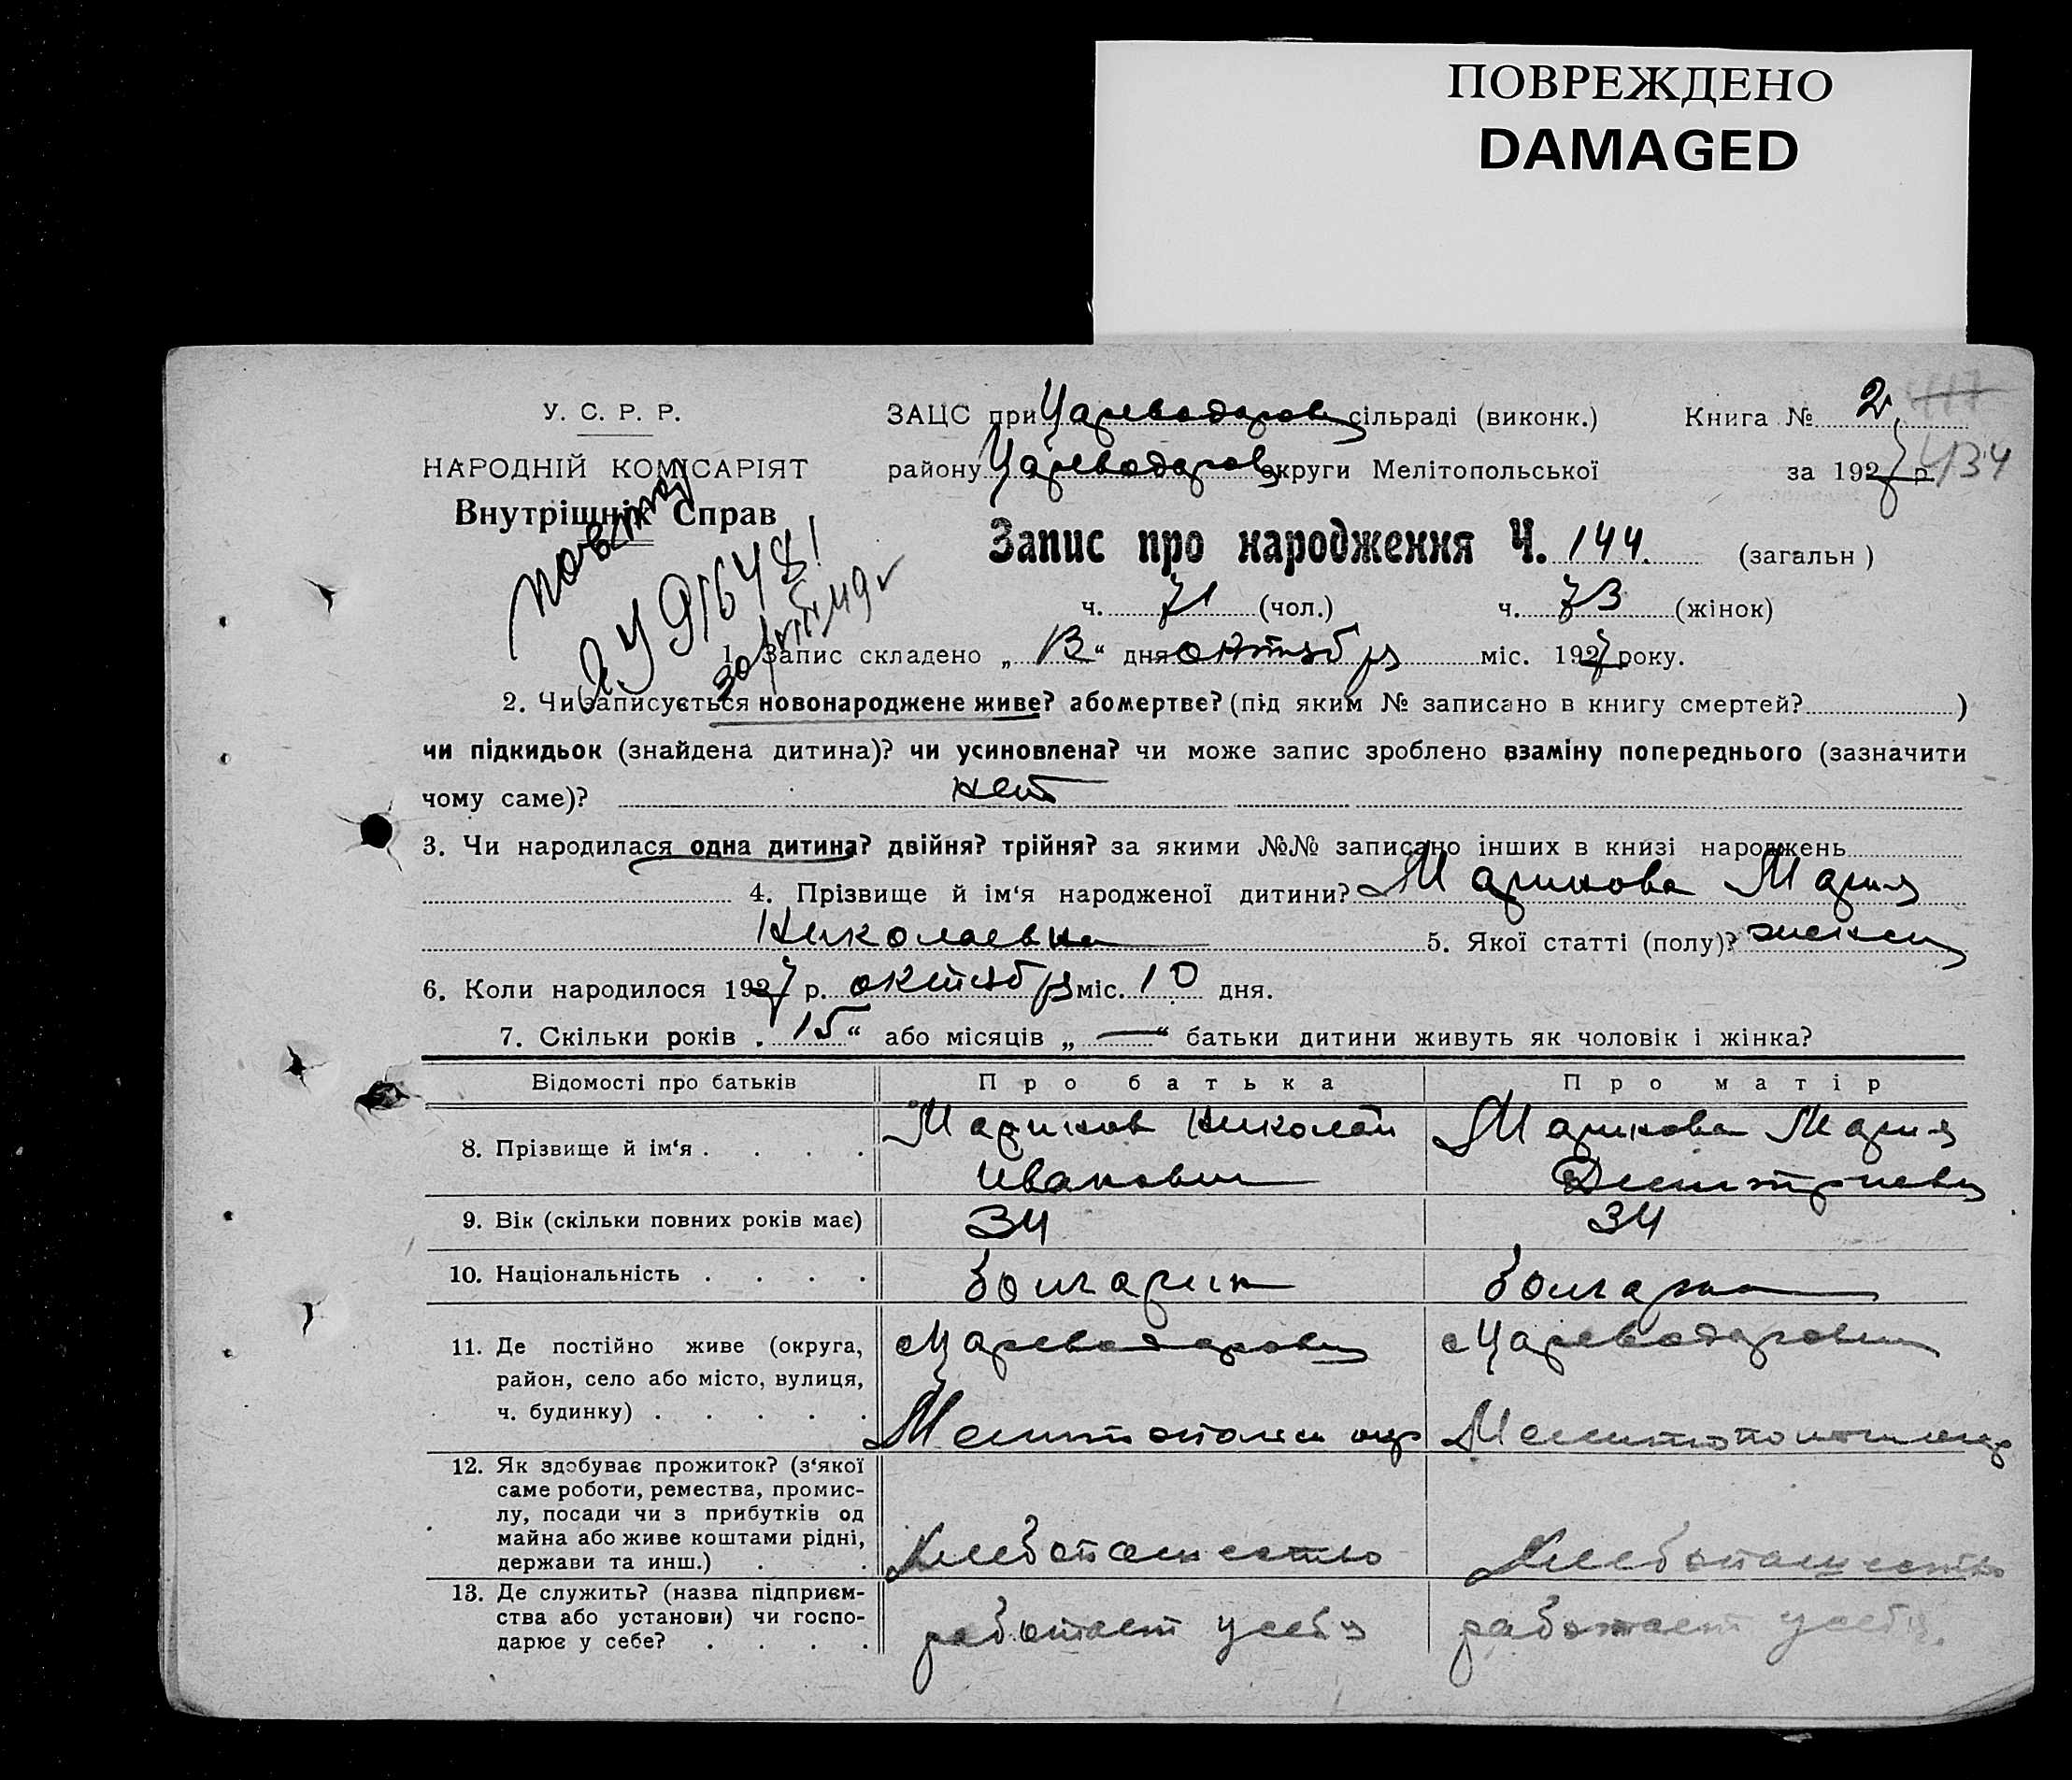 ПОВРЕЖДЕНО
DAMAGED
У. С. Р. Р.
НАРОДНІЙ КОМІСАРІЯТ
Внутрішніх Справ
ЗАЦС при Цареводаров сільраді (виконк.) Книга № 2 417
району Цареводаров округи Мелітопольської за 1927 р. 434
Запис про народження Ч. 144. (загальн)
ч. 71 (чол.) ч. 73 (жінок)
1. Запис складено „ 13 “ дня октября міс. 1927 року.
2. Чи записується новонароджене живе? або мертве? (під яким № записано в книгу смертей? )
чи підкидьок (знайдена дитина)? чи усиновлена? чи може запис зроблено взаміну попереднього (зазначити
чому саме)? нет
3. Чи народилася одна дитина? двійня? трійня? за якими №№ записано інших в книзі народжень
4. Прізвище й ім‘я народженої дитини? Маринова Мария
Николаевна 5. Якої статті (полу)? женск
6. Коли народилося 1927 р. октября міс. 10 дня.
7. Скільки років „ 15 “ або місяців „ — “ батьки дитини живуть як чоловік і жінка?
Відомості про батьків Про батька Про матір
8. Прізвище й ім‘я . . . . Маринов Николай Маринова Мария
Иванович Дмитриевн
9. Вік (скільки повних років має) 34 34
10. Національність . . . . болгарин болгарка
11. Де постійно живе (округа, с Цареводаровк с Цареводаровк
район, село або місто, вулиця,
ч. будинку) . . . . . Мелитопольск окр Мелитопольск окр
12. Як здобуває прожиток? (з‘якої
саме роботи, ремества, промис-
лу, посади чи з прибутків од
майна або живе коштами рідні, Хлебопашество Хлебопашество
держави та инш.) . . .
13. Де служить? (назва підприєм-
ства або установи) чи госпо- работает у себя работает у себя.
дарює у себе? . . . .